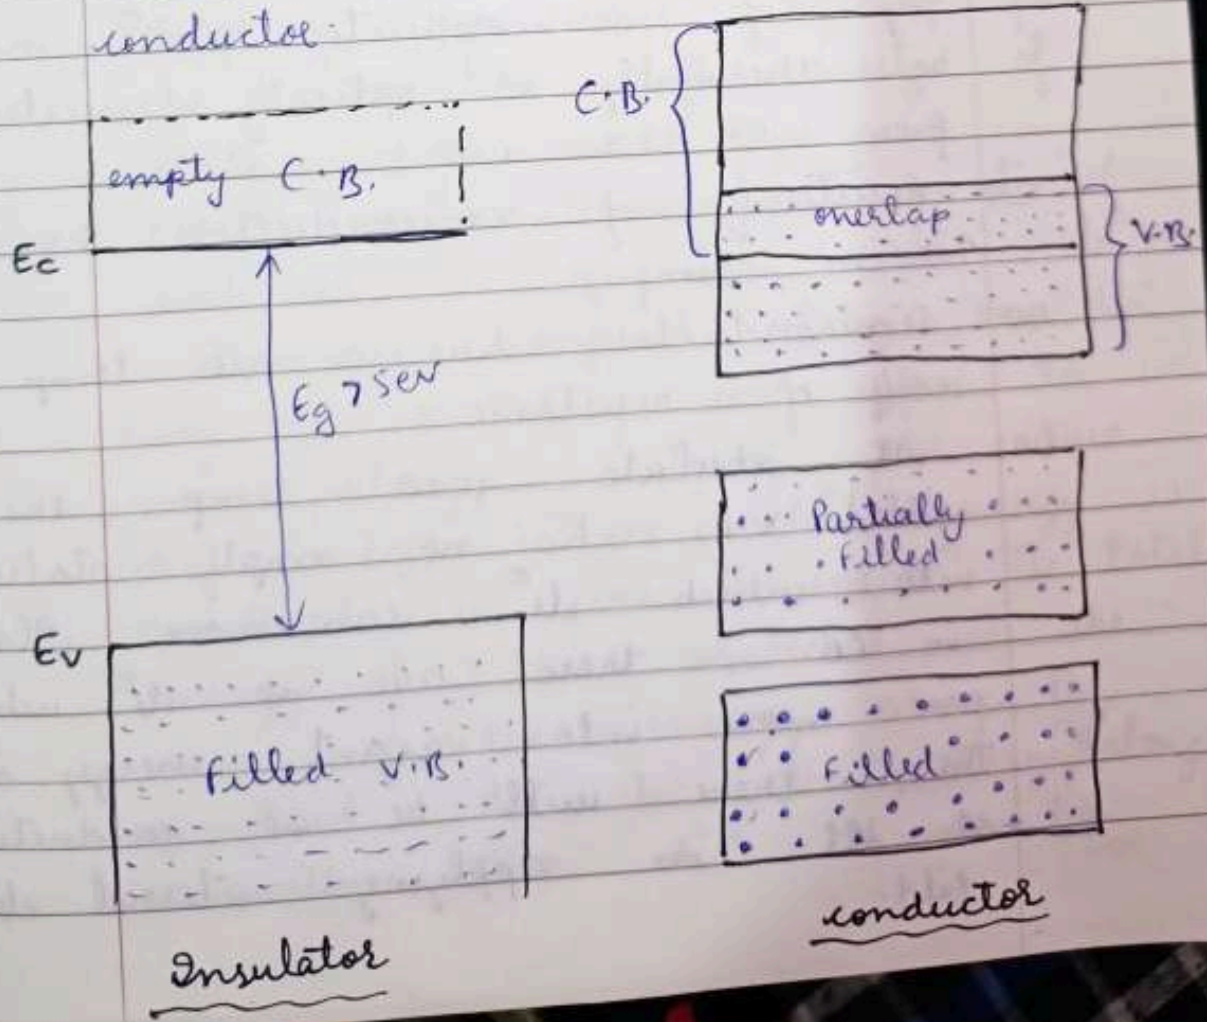 conductor.
empty C.B.
Ec
Eg > 5eV
Ev
Filled V.B.
Insulator
C.B.
overlap
V.B.
Partially
Filled
Filled
conductor